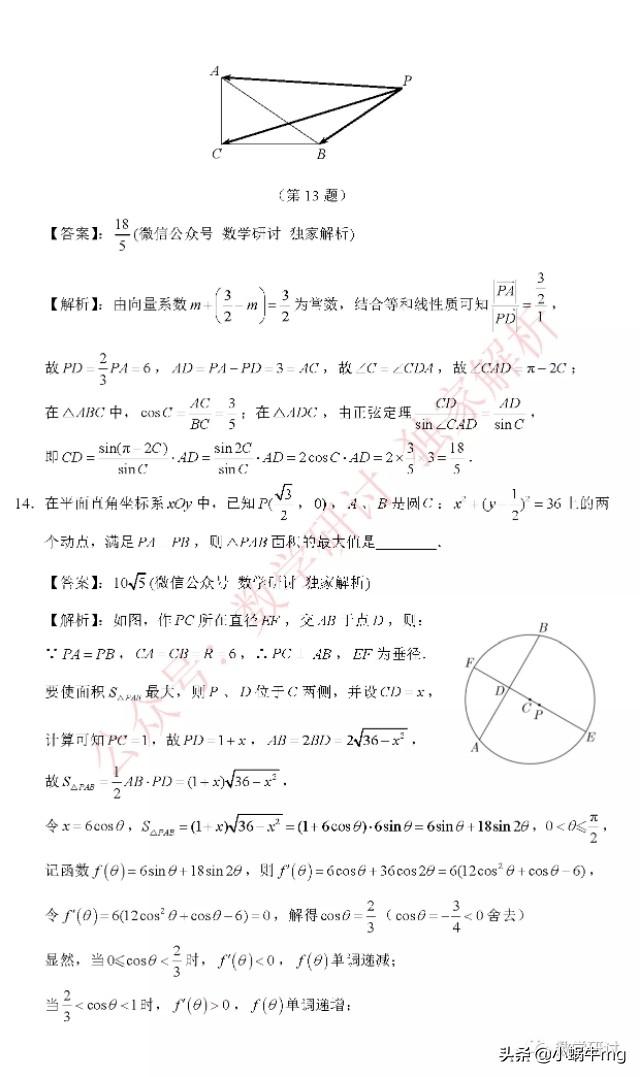 A
P
C
B
（第13题）
【答案】：18/5(微信公众号 数学研讨 独家解析)
【解析】：由向量系数m+(3/2-m)=3/2为常数，结合等和线性质可知|PA|/|PD|=(3/2)/1，
故PD=2/3PA=6，AD=PA-PD=3=AC，故∠C=∠CDA，故∠CAD=π-2C；
在△ABC中，cosC=AC/BC=3/5；在△ADC，由正弦定理CD/sin∠CAD=AD/sinC，
即CD=sin(π-2C)/sinC·AD=sin2C/sinC·AD=2cosC·AD=2×3/5 3=18/5.
14. 在平面直角坐标系xOy中，已知P(√3/2，0)，A、B是圆C：x²+(y 1/2)²=36上的两
个动点，满足PA PB，则△PAB面积的最大值是________.
【答案】：10√5(微信公众号 数学研讨 独家解析)
【解析】：如图，作PC所在直径EF，交AB于点D，则：
∵PA=PB，CA=CB=R=6，∴PC⊥AB，EF为垂径.
要使面积S△PAB最大，则P、D位于C两侧，并设CD=x，
计算可知PC=1，故PD=1+x，AB=2BD=2√36-x²，
故S△PAB=1/2AB·PD=(1+x)√36-x².
B
F
D
C
P
A
E
令x=6cosθ，S△PAB=(1+x)√36-x²=(1+6cosθ)·6sinθ=6sinθ+18sin2θ，0<θ≤π/2，
记函数f(θ)=6sinθ+18sin2θ，则f'(θ)=6cosθ+36cos2θ=6(12cos²θ+cosθ-6)，
令f'(θ)=6(12cos²θ+cosθ-6)=0，解得cosθ=2/3（cosθ=-3/4<0舍去）
显然，当0≤cosθ<2/3时，f'(θ)<0，f(θ)单调递减；
当2/3<cosθ<1时，f'(θ)>0，f(θ)单调递增；
公众号：数学研讨 独家解析
数学研讨
头条@小蜗牛mg